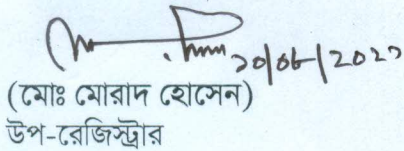 ২০/০৮/২০২২
(মোঃ মোরাদ হোসেন)
উপ-রেজিস্ট্রার